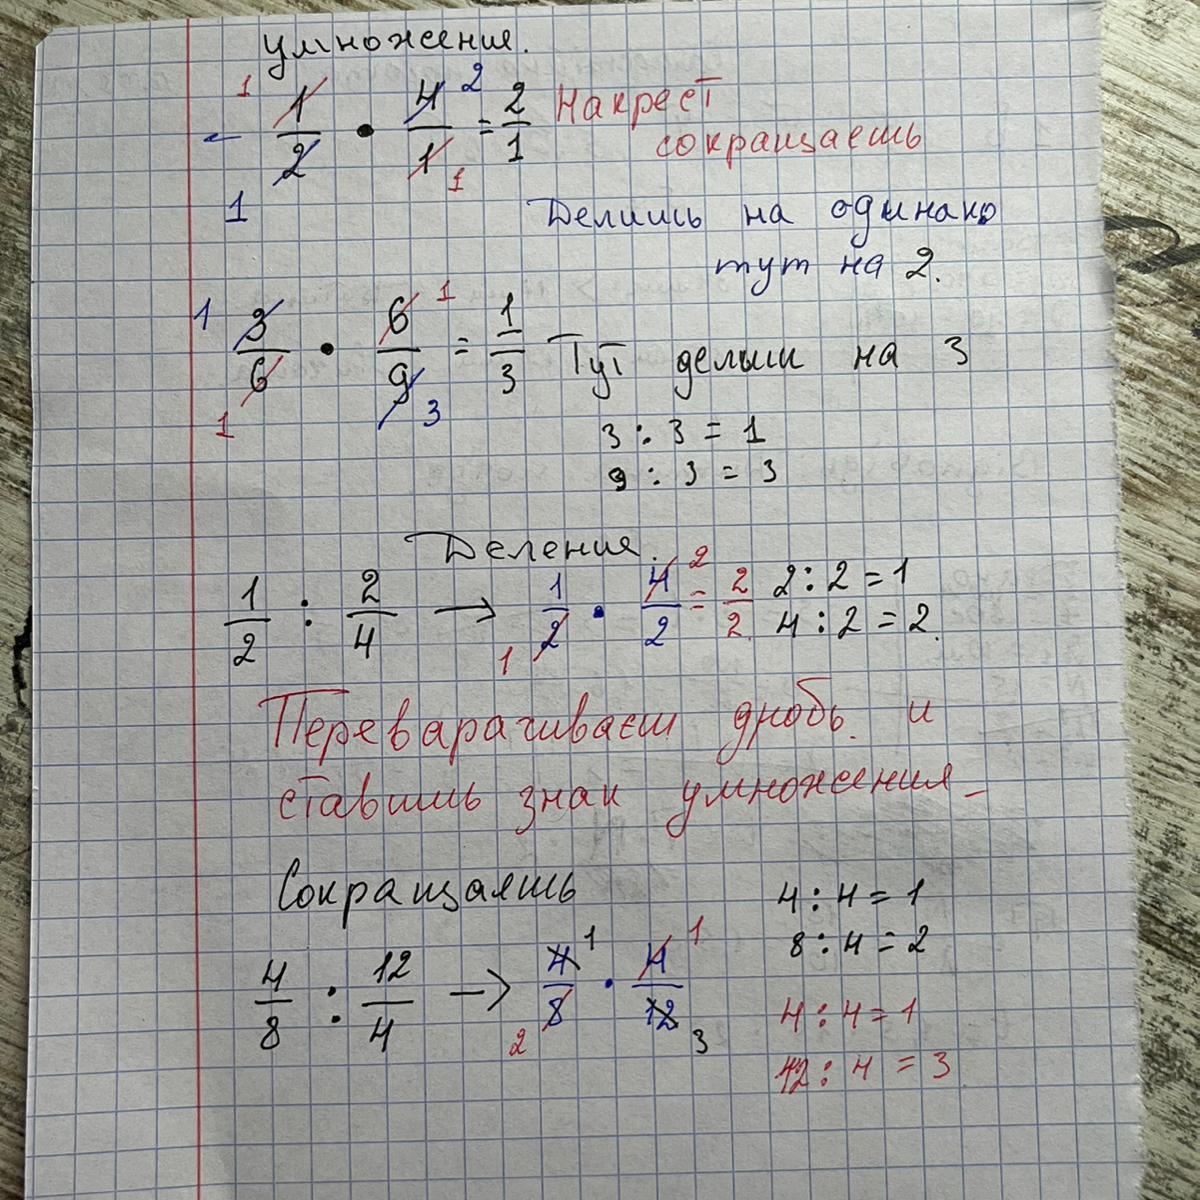 умножение.
1/2 • 4/1 = 2/1 Накрест
1 2 1 1
сокращаешь
Делишь на одинако
тут на 2.
3/6 • 6/9 = 1/3 Тут делиш на 3
1 1 1 3
3 : 3 = 1
9 : 3 = 3
Деления.
1/2 : 2/4 → 1/2 • 4/2 = 2/2 2 : 2 = 1
1 2
4 : 2 = 2.
Переварачиваеш дробь. и
ставишь знак умножения –
Сокращаяшь
4 : 4 = 1
8 : 4 = 2
4/8 : 12/4 → 4/8 • 4/12
1 2 1 3
4 : 4 = 1
12 : 4 = 3